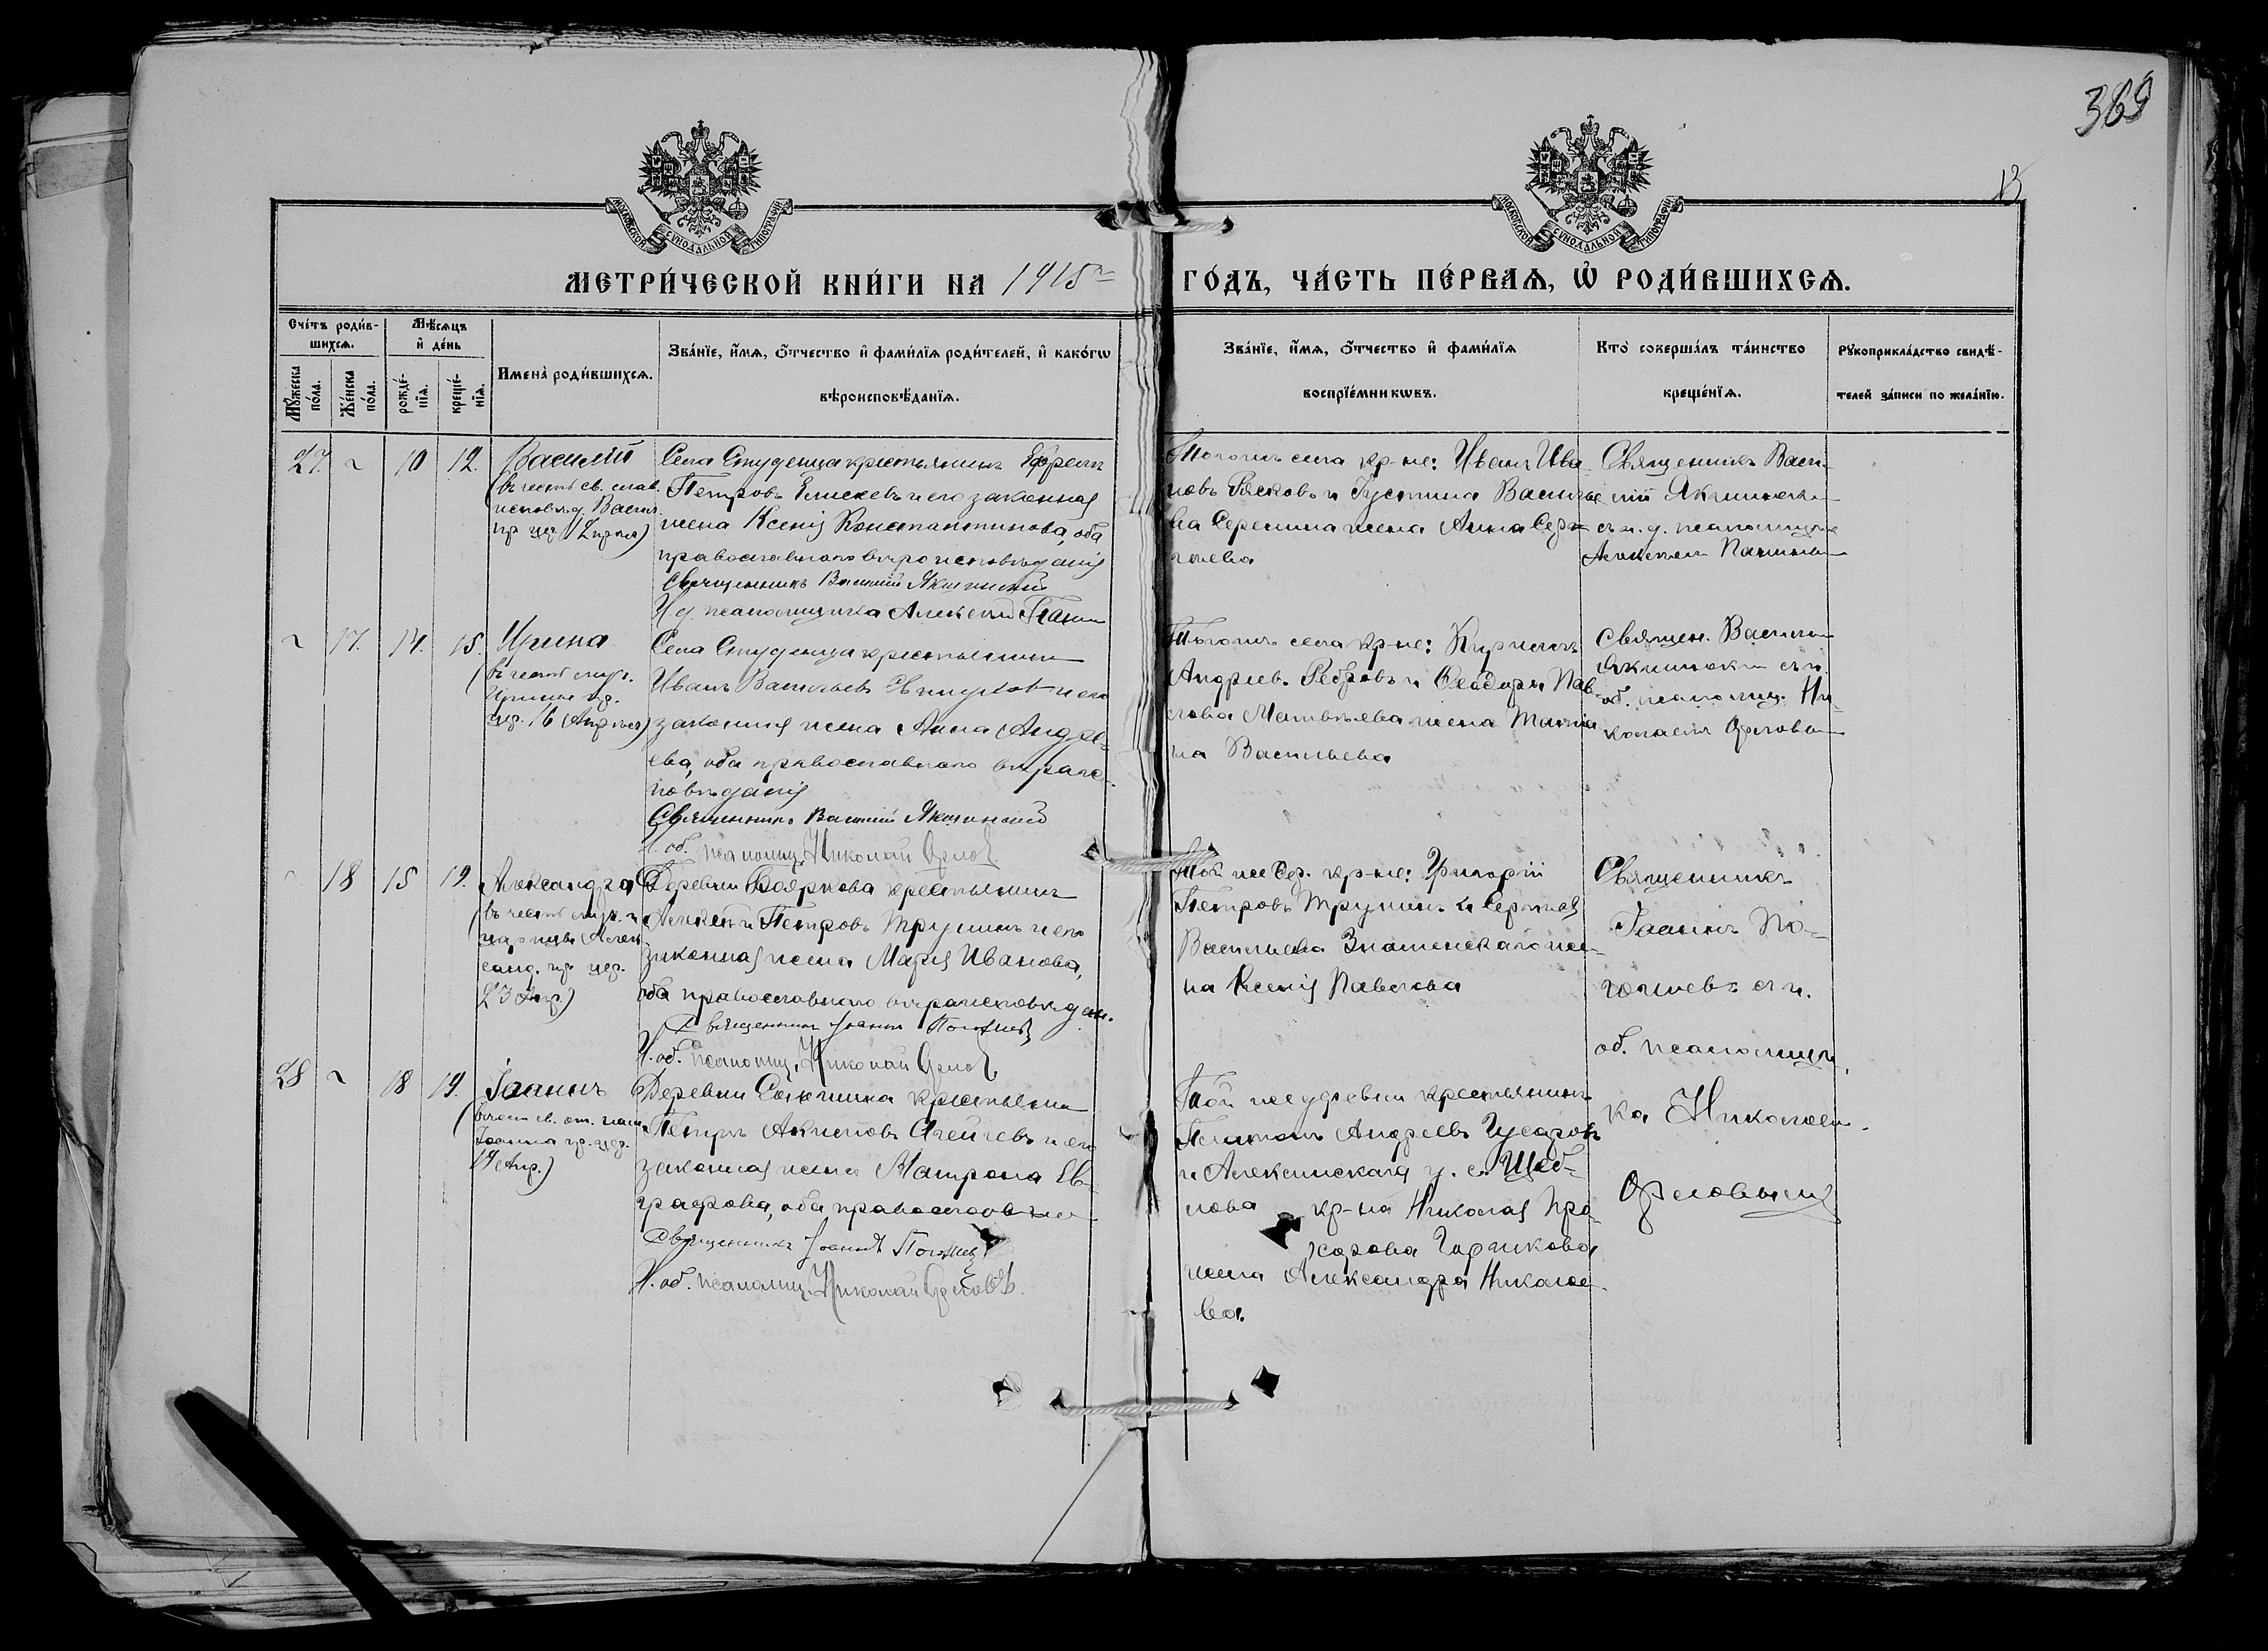 369
13
МОСКОВСКОЙ СѴНОДАЛЬНОЙ ТИПОГРАФІИ
МОСКОВСКОЙ СѴНОДАЛЬНОЙ ТИПОГРАФІИ
МЕТРИ́ЧЕСКОЙ КНИ́ГИ НА 1915 г
ГО́ДЪ, ЧА́СТЬ ПЕ́РВАѦ, Ѡ҆ РОДИ́ВШИХСѦ.
Сче́тъ роди́в-
шихсѧ.
Мѣ́сѧцъ
и҆ де́нь
Мꙋ́жеска
по́ла.
Же́нска
по́ла.
рожде́-
нїѧ.
креще́-
нїѧ.
Имена̀ роди́вшихсѧ.
Зва́нїе, и҆́мѧ, ѻ҆́тчество и҆ фами́лїѧ роди́телей, и҆ како́гѡ
вѣроисповѣ́данїѧ.
Зва́нїе, и҆́мѧ, ѻ҆́тчество и҆ фами́лїѧ
воспрїе́мникѡвъ.
Кто̀ соверша́лъ та́инство
креще́нїѧ.
Рꙋкоприкла́дство свидѣ́-
телей за́писи по жела́нїю.
27. ~ 10 12. Василій
(въ честь св. слав.
исповѣд. Васил.
пр. цер. 12 Апрѣля)
Села Студенца крестьянинъ Ефремъ
Петровъ Елисеевъ и его законная
жена Ксенія Константинова, оба
православнаго вѣроисповѣданія
Священникъ Василій Якшинскій
И. д. псаломщика Алексѣй Панин
Того же села кр-не: Иванъ Ива-
новъ и Густина Василье
ва Серегина жена Анна Сер
гѣева
Священникъ Васи-
лій Якшински
съ и. д. псаломщика
Алексѣемъ Паниным
~ 17. 14. 15. Ирина
(въ честь муч.
Ирины пр.
цер. 16 Апрѣля)
Села Студенца крестьянинъ
Иванъ Васильевъ и его
законная жена Анна Андре-
ева, оба православнаго вѣроис-
повѣданія
Священникъ Василій Якшинскій
И. об. псаломщ. Николай Орлов.
Того же села кр-не: Кириллъ
Андреев. Ребровъ и Ѳеодора Пав-
лова Матвѣева жена Татья
на Васильева
Священ. Василій
Якшински съ и.
об. псаломщ. Ни-
колаемъ Орловы
18 15 19. Александра
(въ честь муч. и
царицы Алек-
санд. пр. цер.
23 Апр.)
Деревни Бояркова крестьянинъ
Алексѣй Петровъ Трушинъ и его
законная жена Марія Иванова,
оба православнаго вѣроисповѣдан.
Священникъ Іоаннъ Погожевъ
И. об. псаломщ. Николай Орлов.
Той же дер. кр-не: Григорій
Петровъ Трушинъ и Сергѣя
Васильева Знаменскаго же-
на Ксенія Павлова
Священникъ
Іоаннъ По-
гожевъ съ и.
об. псаломщи
ка Николаем
Орловымъ
28 ~ 18 19. Іоаннъ
(въ чест. св. от. наш.
Іоанна пр. цер.
19 Апр.)
Деревни крестьянин
Петръ Акимовъ Агейчевъ и его
законная жена Матрона Ев-
графова, оба православные
Священникъ Іоаннъ Погожевъ
И. об. псаломщ. Николай Орловъ.
Той же деревни крестьянинъ
Андреевъ Гусаровъ
и Алексинскаго у. с. Щеб-
лова кр-на Николая Про-
хорова Горшкова
жена Александра Николае-
ва.